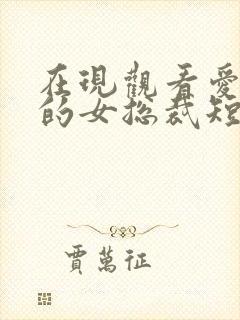 在現觀看愛
的女總裁短
賈萬征